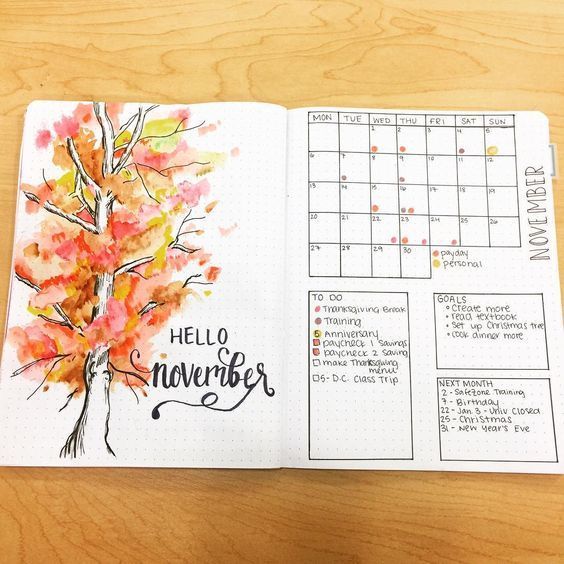 HELLO
november
MON TUE WED THU FRI SAT SUN
1 2 3 4 5
6 7 8 9 10 11 12
13 14 15 16 17 18 19
20 21 22 23 24 25 26
27 28 29 30
payday
personal
NOVEMBER
TO DO
Thanksgiving Break
Training
5 Anniversary
paycheck 1 savings
paycheck 2 saving
make Thanksgiving
menu
5- D.C. Class Trip
GOALS
create more
read textbook
Set up Christmas tree
cook dinner more
NEXT MONTH
2 - SafeZone Training
7 - Birthday
22 - Jan. 3 - Univ Closed
25 - Christmas
31 - New Year's Eve